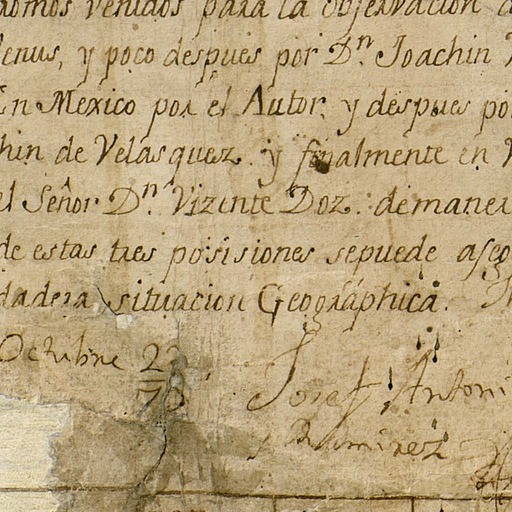 venidos para la observacion
Venus, y poco despues por Dn. Joachin
En Mexico por el Autor, y despues por
de Velasquez. y finalmente en
el Señor Dn. Vizente Doz. demaner
de estas tres posisiones sepuede aseg
dadera situacion Geográphica.
Octubre
Josef Antoni
Ramirez